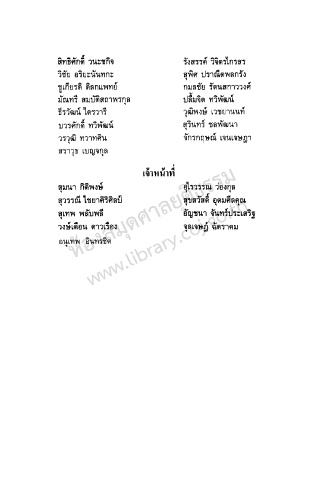 สิทธิศักดิ์ วนะชกิจ
วิชัย อริยะนันทกะ
ชูเกียรติ ดิลกแพทย์
มัณทรี สมบัติสถาพรกุล
ธีรวัฒน์ ไตรวารี
บวรศักดิ์ ทวิพัฒน์
วรวุฒิ ทวาทศิน
สราวุธ เบญจกุล
รังสรรค์ วิจิตรไกรสร
สุพิศ ปราณีตพลกรัง
กมลชัย รัตนสกาววงศ์
ปลื้มจิต ทวิพัฒน์
วุฒิพงษ์ เวชยานนท์
สุรินทร์ ชลพัฒนา
จักรกฤษณ์ เจนเจษฎา
เจ้าหน้าที่
สุมนา กิติพงษ์
สุวรรณี ไชยาศิริศิลป์
สุเทพ พลับพลี
วงษ์เดือน ดาวเรือง
อนุเทพ อินทรชิต
สุไรวรรณ ว่องกุล
สุขสวัสดิ์ อุดมศีลคุณ
ธัญชนา จันทร์ประเสริฐ
จุลเจษฎ์ ฉัตราคม
ห้องสมุดศาลยุติธรรม
www.library.coj.go.th